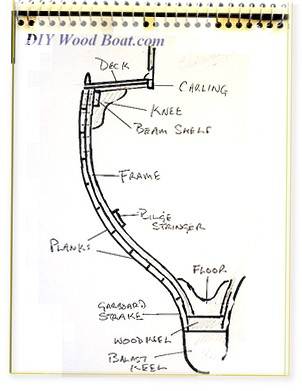 DIY Wood Boat.com
DECK
CARLING
KNEE
BEAM SHELF
FRAME
BILGE
STRINGER
PLANKS
FLOOR
GARBOARD
STRAKE
WOOD KEEL
BALAST
KEEL